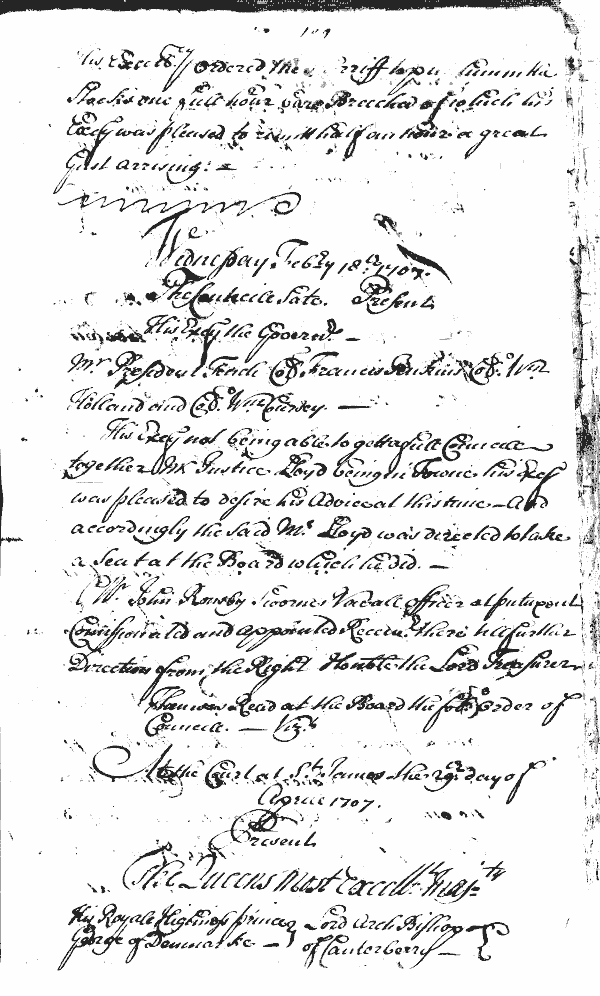 His Excēcy ordered the Sheriff to putt him in the
Stocks one full hour bare Breeched of which his
Excy was pleased to remitt half an hour a great
Gust arrising. —
Wednesday Febry 18th 1707.
The Councill Sate. Present
His Excy the Governr. —
Mr President Tench Coll. Francis Jenkins Coll. Wm
Holland and Coll. Wm Coursey. —
His Excy not being able to gett a full Councill
together Mr Justice Lloyd being in Towne his Excy
was pleased to desire his Advice at this time — And
accordingly the said Mr Lloyd was directed to take
a Seat at the Board which he did. —
Mr John Rousby Swome Navall officer at putuxent
Comissionated and appointed Receivr there till further
Directions from the Right Honble the Lord Treasurer
Then was Read at the Board the follo: order of
Councill. — Vizt
At the Court at St James the 29th day of
Aprill 1707.
Present
The Queens most Excellt Majty
His Royall Highness prince Lord Arch Bishop
George of Denmarke — of Canterberry —